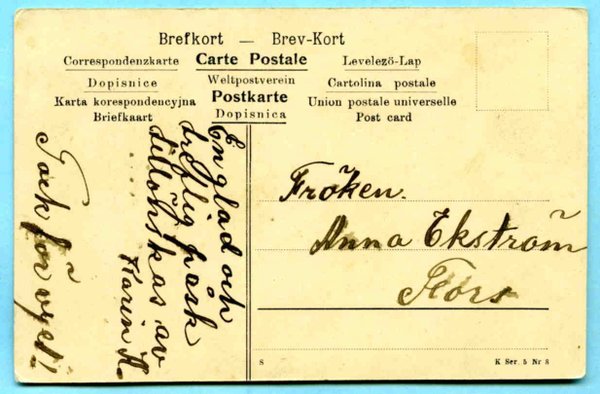 Brefkort — Brev-Kort
Correspondenzkarte Carte Postale Levelező-Lap
Dopisnice Weltpostverein Cartolina postale
Karta korespondencyjna Postkarte Union postale universelle
Briefkaart Dopisnica Post card
En glad och
treflig påsk
tillönskas av
Karin A.
Tack för vyet!
Fröken.
Anna Ekström
Flors
S
K Ser. 5 Nr 8